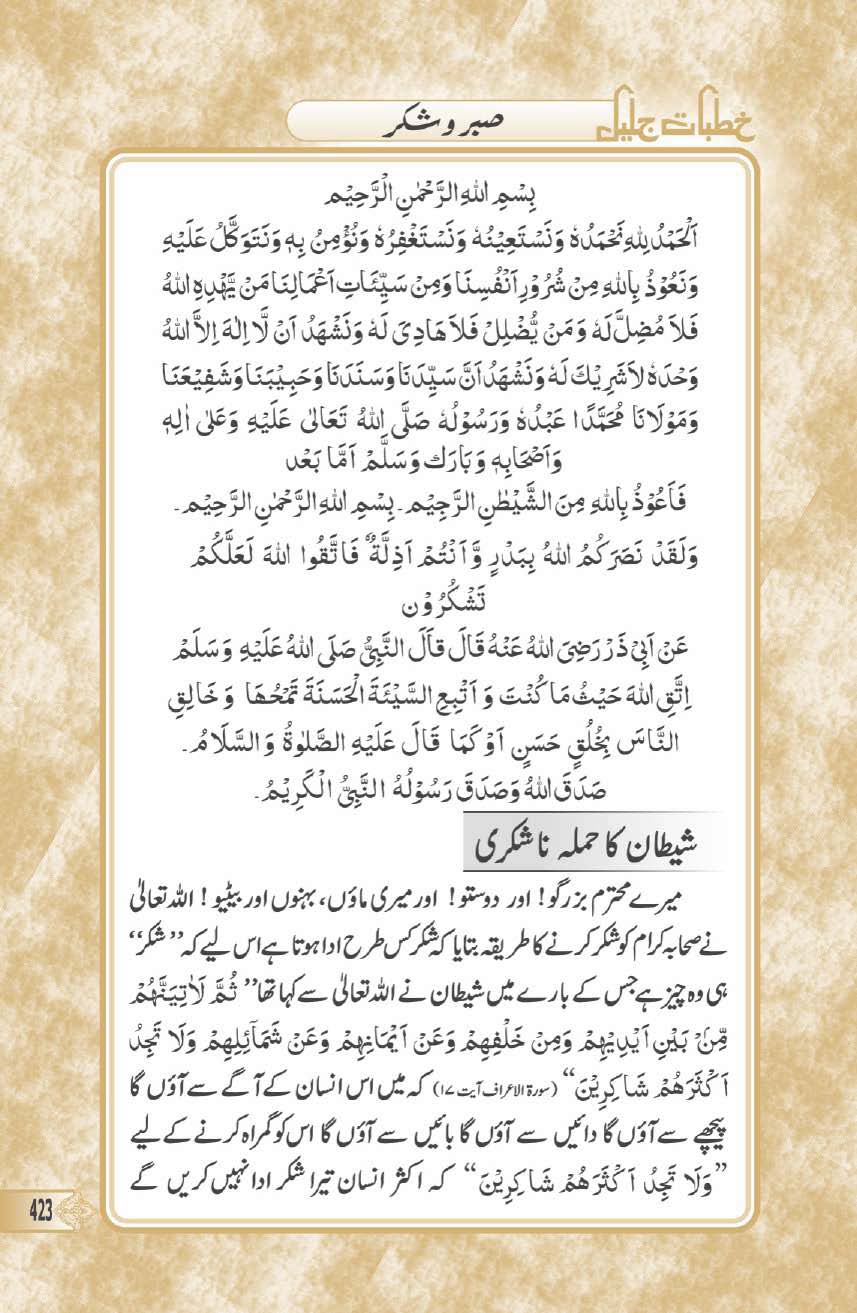 خطبات جلیل
صبر و شکر
بِسْمِ اللهِ الرَّحْمٰنِ الْرَّحِیْم
اَلْحَمْدُ لِلّٰهِ نَحْمَدُهٗ وَنَسْتَعِیْنُهٗ وَنَسْتَغْفِرُهٗ وَنُؤْمِنُ بِهٖ وَنَتَوَكَّلُ عَلَیْهِ
وَنَعُوْذُ بِاللهِ مِنْ شُرُوْرِ اَنْفُسِنَا وَمِنْ سَیِّئَاتِ اَعْمَالِنَا مَنْ یَّهْدِهِ اللهُ
فَلَا مُضِلَّ لَهٗ وَمَنْ یُّضْلِلْ فَلَا هَادِیَ لَهٗ وَنَشْهَدُ اَنْ لَّا اِلٰهَ اِلاَّ اللهُ
وَحْدَهٗ لَا شَرِیْكَ لَهٗ وَنَشْهَدُ اَنَّ سَیِّدَنَا وَسَنَدَنَا وَحَبِیْبَنَا وَشَفِیْعَنَا
وَمَوْلَانَا مُحَمَّدًا عَبْدُهٗ وَرَسُوْلُهٗ صَلَّی اللهُ تَعَالٰی عَلَیْهِ وَعَلٰی اٰلِهٖ
وَاَصْحَابِهٖ وَبَارَك وَسَلَّمْ اَمَّا بَعْد
فَاَعُوْذُ بِاللهِ مِنَ الشَّیْطٰنِ الرَّجِیْم۔بِسْمِ اللهِ الرَّحْمٰنِ الرَّحِیْم۔
وَلَقَدْ نَصَرَكُمُ اللهُ بِبَدْرٍ وَّاَنْتُمْ اَذِلَّةٌ ۚ فَاتَّقُوا اللهَ لَعَلَّكُمْ
تَشْكُرُوْن
عَنْ اَبِیْ ذَرْ رَضِیَ اللهُ عَنْهُ قَالَ قاَلَ النَّبِیُّ صَلَی اللهُ عَلَیْهِ وَسَلَمْ
اِتَّقِ اللهَ حَیْثُ مَا كُنْتَ وَ اَتْبِعِ السَّیْئَةَ الْحَسَنَةَ تَمْحُهَا وَ خَالِقِ
النَّاسَ بِخُلُقٍ حَسَنٍ اَوْ كَمَا قَالَ عَلَیْهِ الصَّلٰوةُ وَ السَّلَامُ۔
صَدَقَ اللهُ وَصَدَقَ رَسُوْلُهُ النَّبِیُّ الْكَرِیْمُ۔
شیطان کا حملہ ناشکری
میرے محترم بزرگو! اور دوستو! اور میری ماؤں، بہنوں اور بیٹیو! اللہ تعالیٰ
نے صحابہ کرام کو شکر کرنے کا طریقہ بتایا کہ شکر کس طرح ادا ہوتا ہے اس لیے کہ ’’شکر‘‘
ہی وہ چیز ہے جس کے بارے میں شیطان نے اللہ تعالیٰ سے کہا تھا’’ ثُمَّ لَاٰتِیَنَّهُمْ
مِّنْۢ بَیْنِ اَیْدِیْهِمْ وَمِنْ خَلْفِهِمْ وَعَنْ اَیْمَانِهِمْ وَعَنْ شَمَآئِلِهِمْ وَلَا تَجِدُ
اَكْثَرَهُمْ شَاكِرِیْنَ‘‘ (سورۃ الاعراف آیت ۱۷) کہ میں اس انسان کے آگے سے آؤں گا
پیچھے سے آؤں گا دائیں سے آؤں گا بائیں سے آؤں گا اس کو گمراہ کرنے کے لیے
’’وَلَا تَجِدُ اَكْثَرَهُمْ شَاكِرِیْنَ‘‘ کہ اکثر انسان تیرا شکر ادا نہیں کریں گے
423